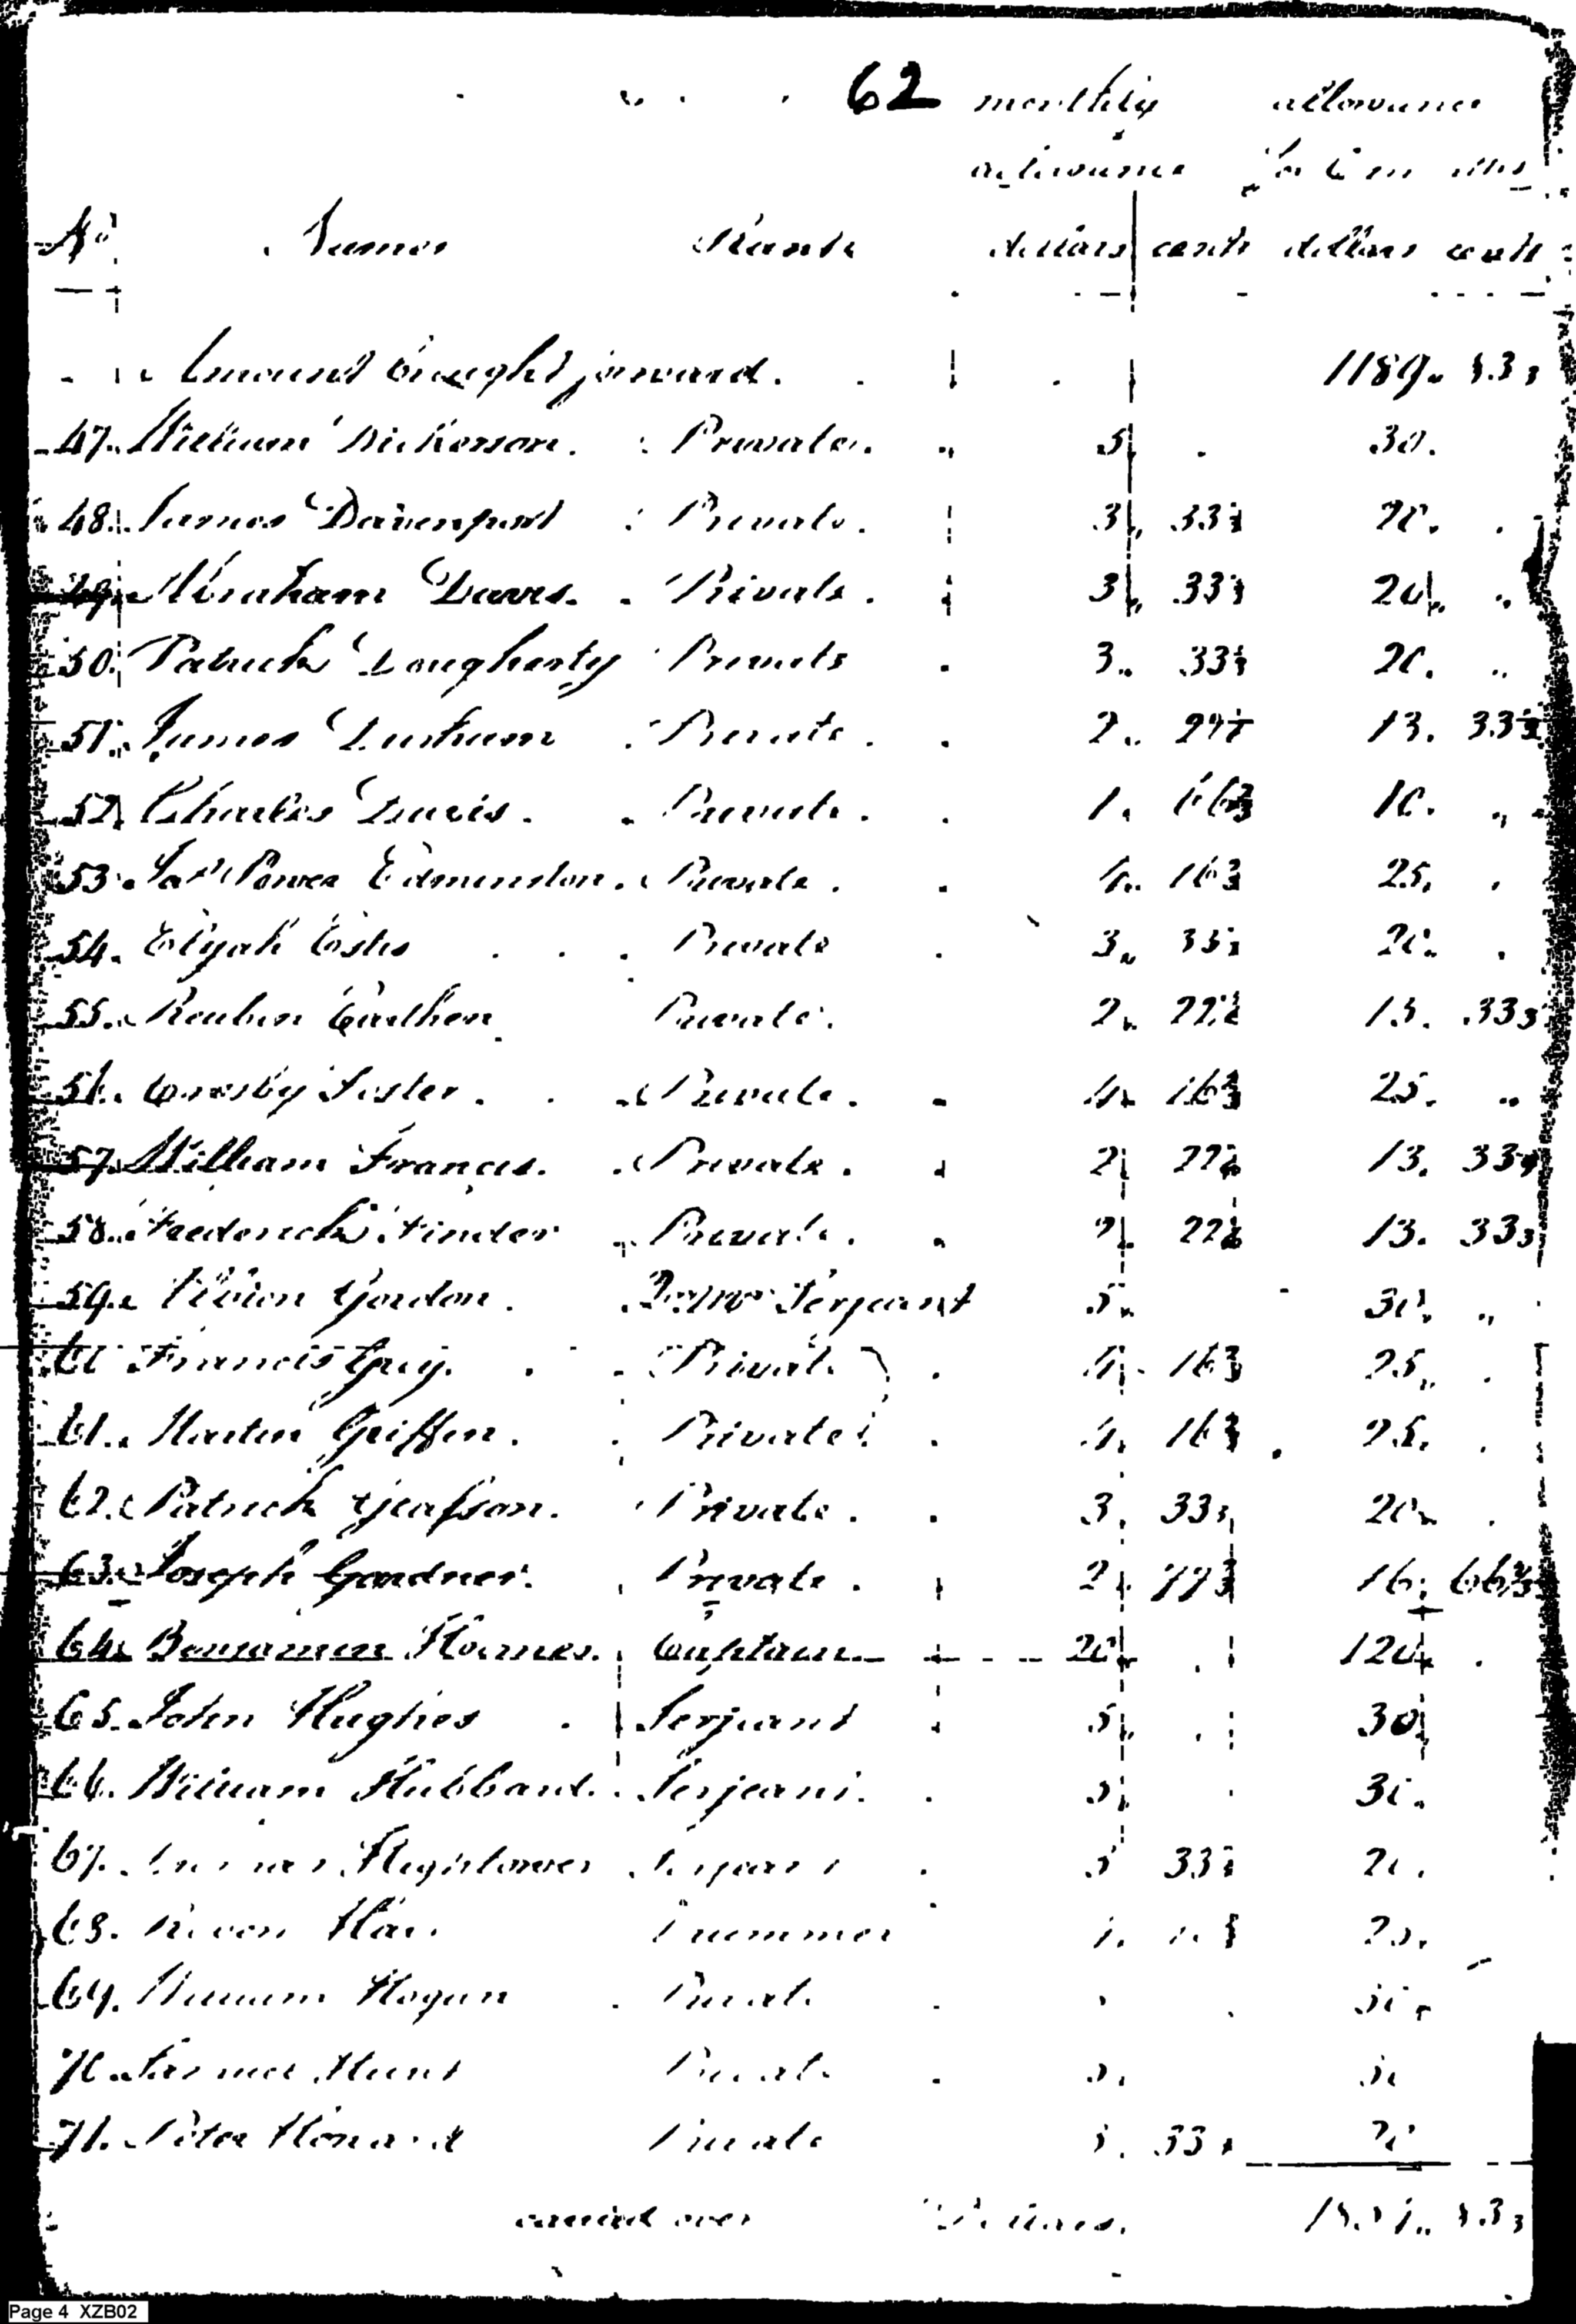 62 monthly allowance
allowance for 6 months
No. Names Rank dollars cents dollars cents
Amount brought forward. 1189. 33
47. William Dickerson. Private. 5 30.
48. James Davenport Private. 3 33⅓ 20.
49. Abraham Davis. Private. 3 33⅓ 20
50. Patrick Dougherty Private 3. 33⅓ 20.
51. James Durham Private. 2. 22 13. 33⅓
52. Charles Davis. Private. 1. 66⅔ 10.
53. Power Edmunston. Private. 4. 16⅔ 25.
54. Elijah Estes Private 3. 33⅓ 20.
55. Reuben Earthen Private. 2. 22 13. 33⅓
56. Crosby Foster. Private. 4. 16⅔ 25.
57. William Francis. Private. 2 22 13. 33⅓
58. Frederick Finder Private. 2 22 13. 33⅓
59. Albion Gordon. Serjeant 5. 30.
60 Francis Gray. Private 4. 16⅔ 25.
61. Martin Griffen. Private 4. 16⅔ 25.
62. Patrick Grafson. Private. 3. 33⅓ 20.
63. Joseph Gardner. Private. 2. 77 16. 66⅔
64. Benjamin Hoomes. Captain 20 120.
65. John Hughes Serjeant 5 30
66. William Hubbard. Serjeant. 5 30.
67. Hightower Serjeant 3 33⅓ 20.
68. Drummer 25.
69. William Hogan Private 30
70. Hunt Private 5. 30
71. Peter Howard Private 3. 33⅓ 20
carried over Dollars.
Page 4 XZB02